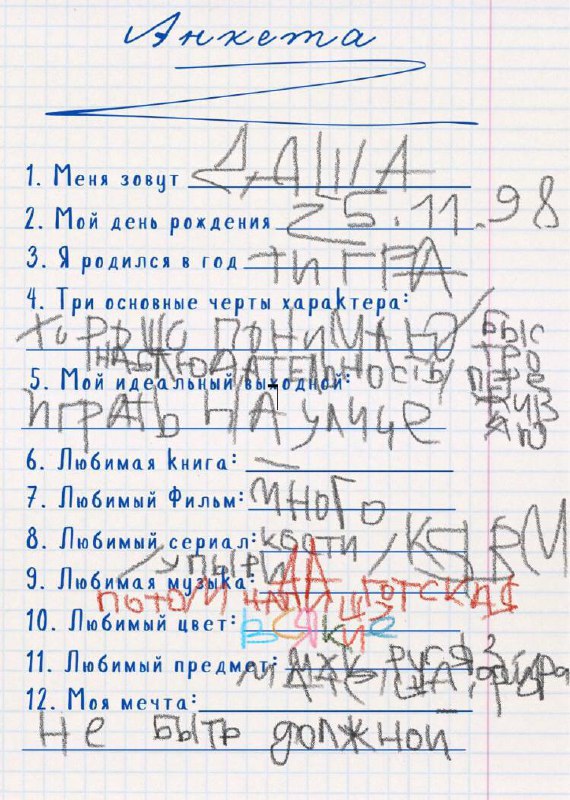 Анкета
1. Меня зовут ДАША
2. Мой день рождения 25.11.98
3. Я родился в год ТИГРА
4. Три основные черты характера:
ХОРОШО ПОНИМАЮ /
НАБЛЮДАТЕЛЬНОСТЬ/
БЫС
ТРО
ПЕРЕ
5. Мой идеальный выходной:
ИГРАТЬ НА УЛИЦЕ
6. Любимая книга: —
7. Любимый Фильм: МНОГО
8. Любимый сериал: КВОТИ / КЯРМ
/ УПЫРИ
9. Любимая музыка: ДА
ПОТОМ НАПИШУ ГОТСКАЯ
10. Любимый цвет: ВСЯКИЕ
11. Любимый предмет: МХК, РУСЯЗ
12. Моя мечта:
НЕ БЫТЬ ДОЛЖНОЙ